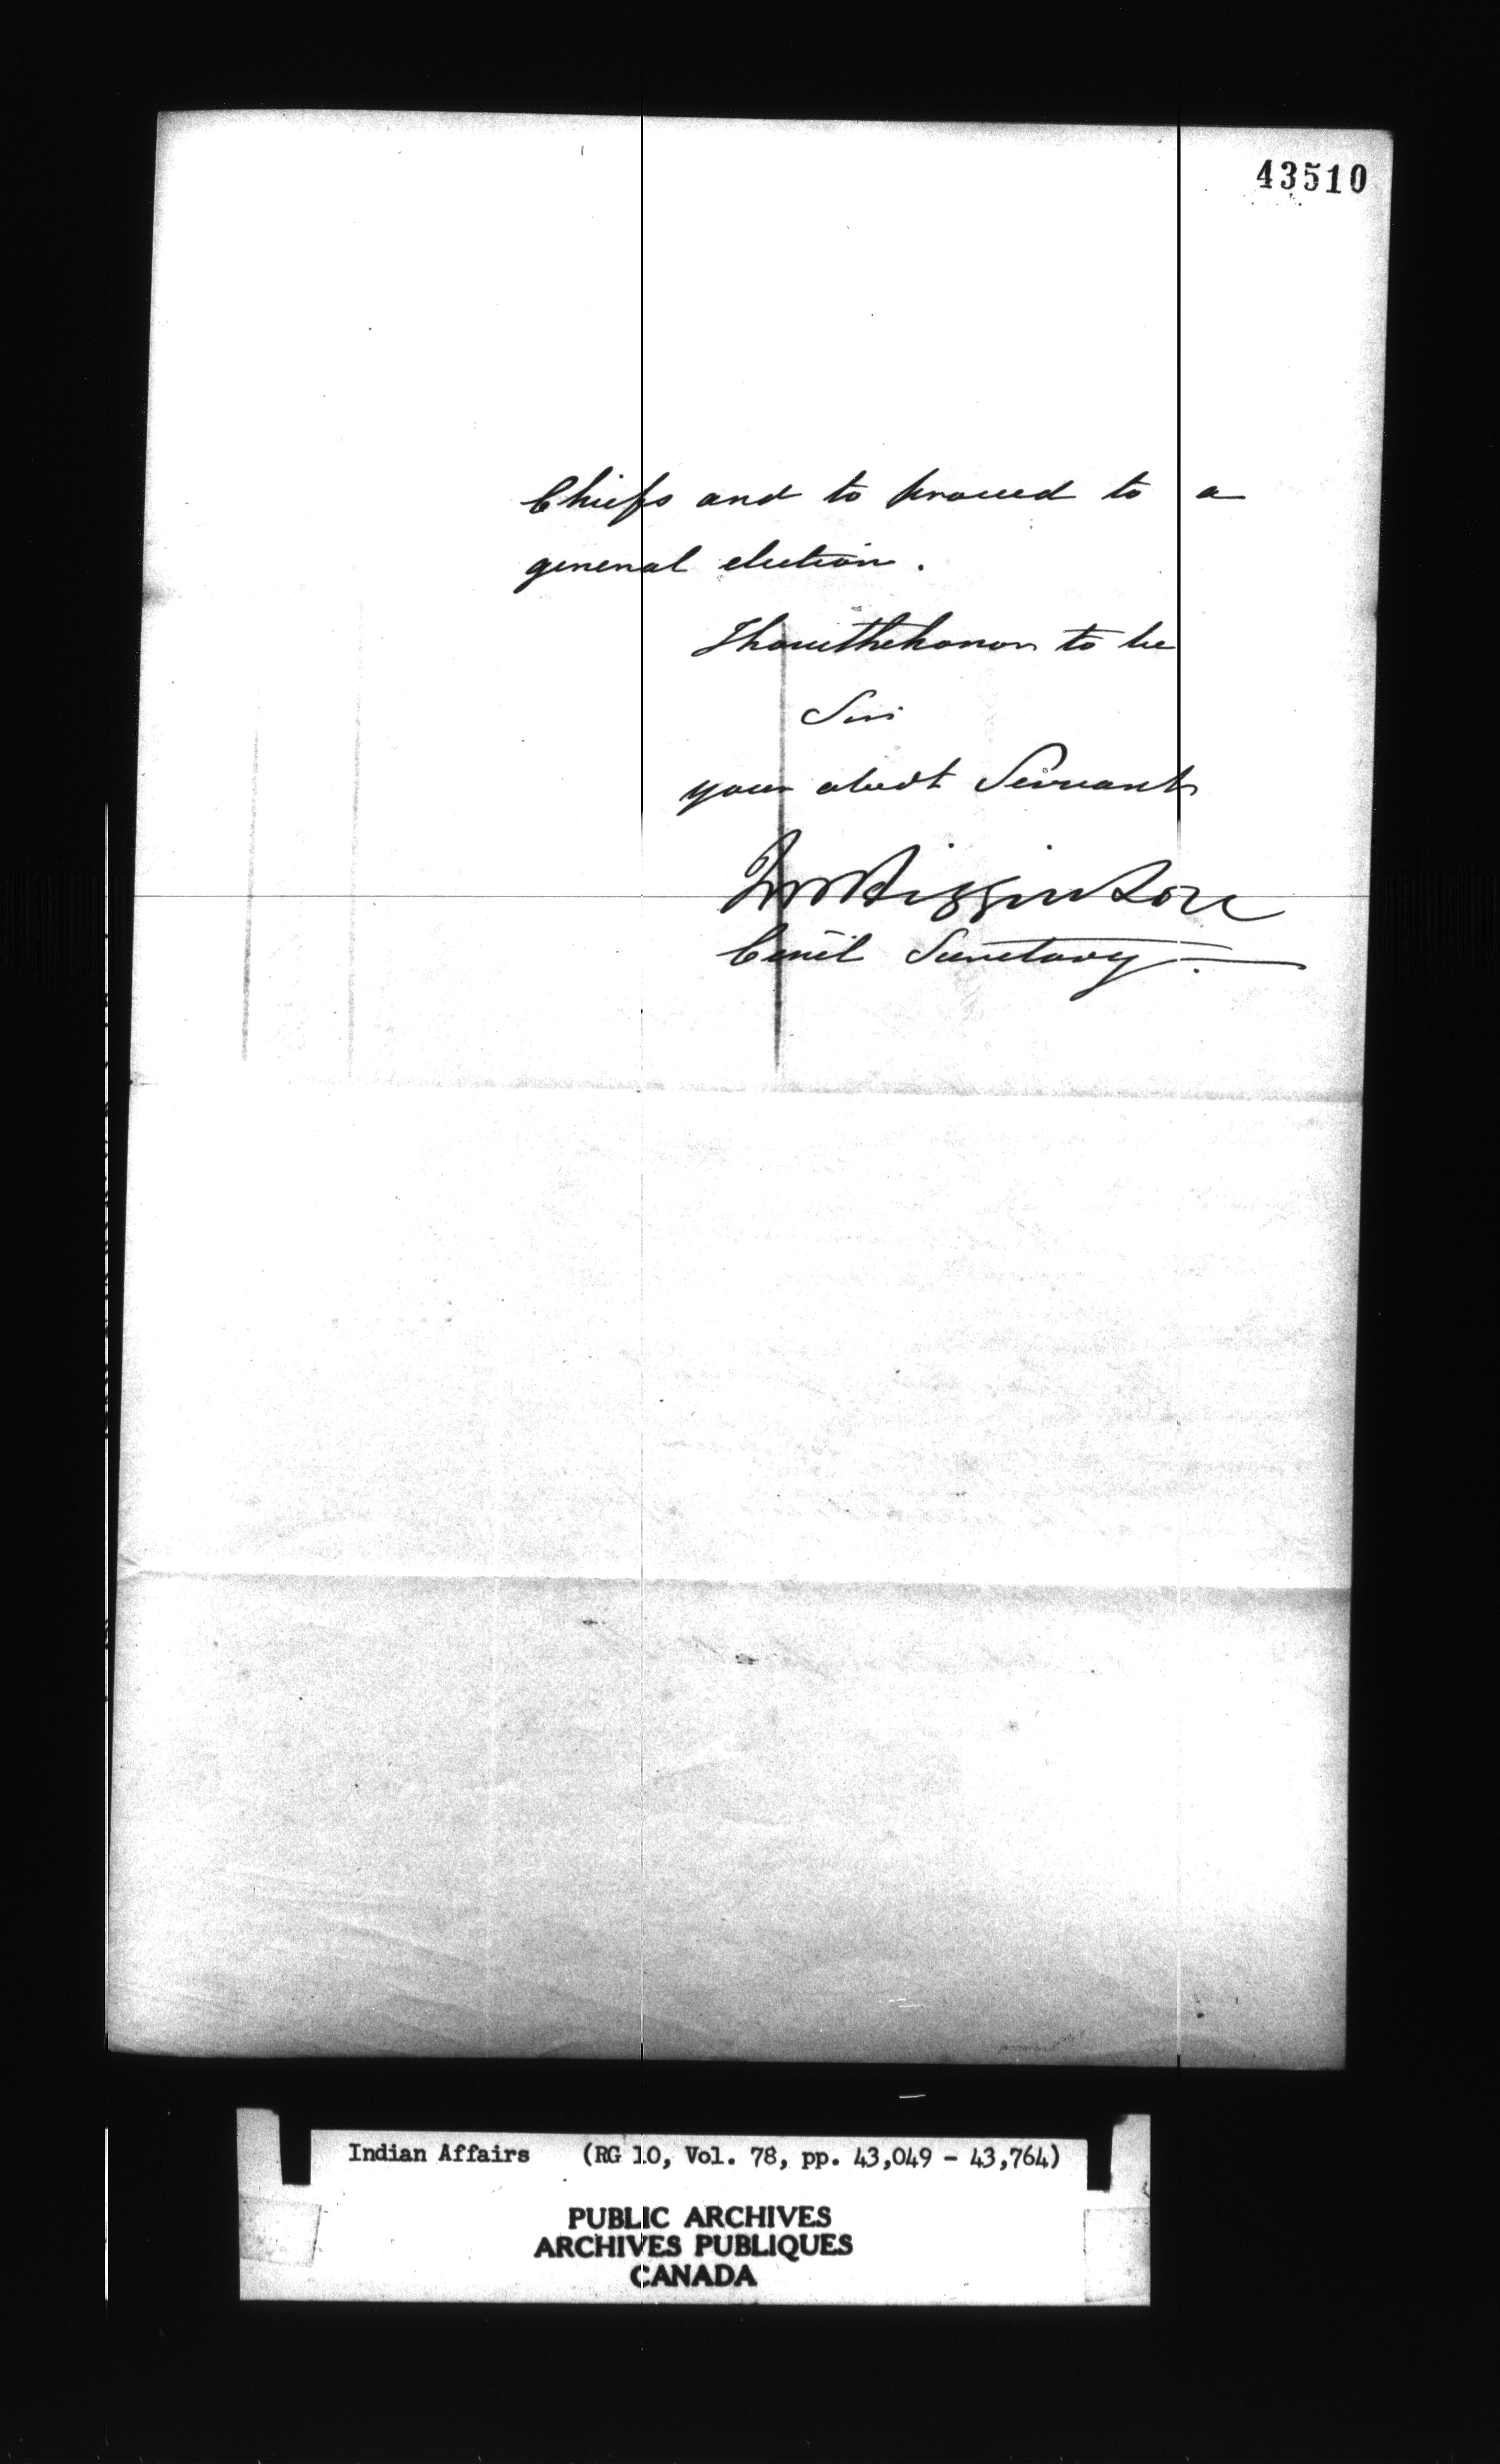 43510
Chiefs and to proceed to a
general election.
I have the honor to be
Sir
your obedt Servant
JM Higginson
Civil Secretary.
Indian Affairs (RG 10, Vol. 78, pp. 43,049 - 43,764)
PUBLIC ARCHIVES
ARCHIVES PUBLIQUES
CANADA